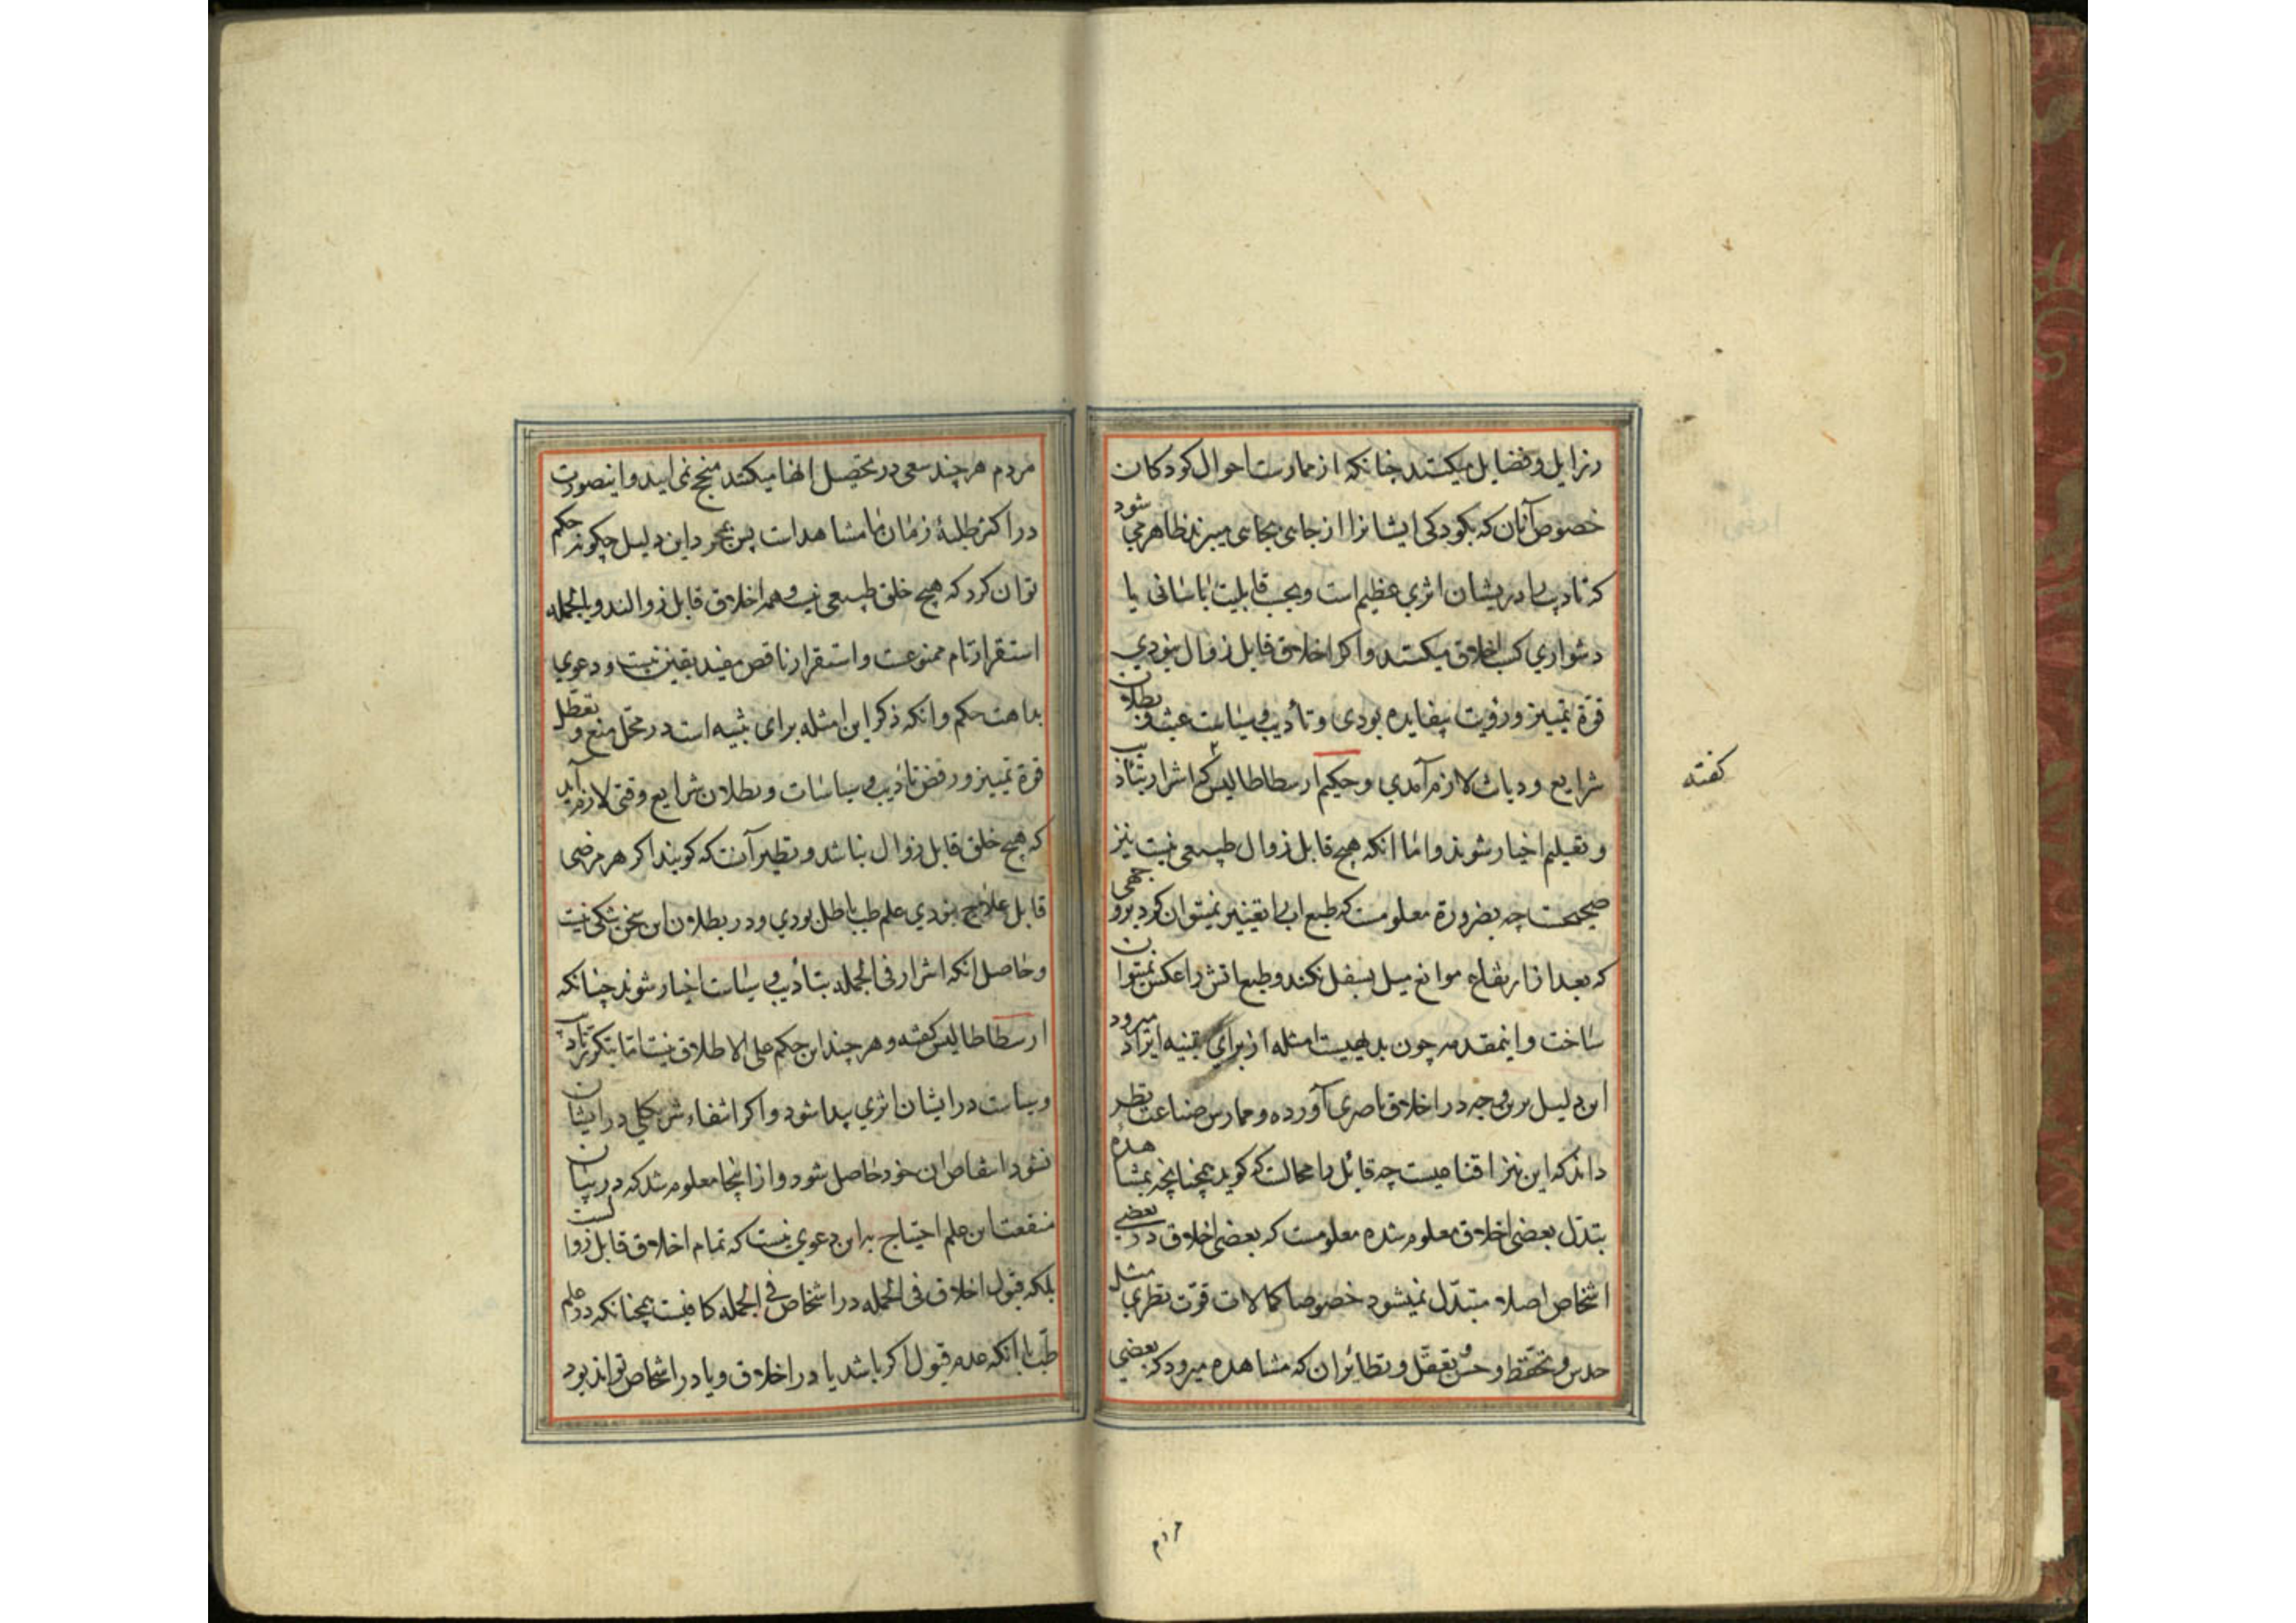 رزایل و فضایل میکنند چنانکه از ممارست احوال کودکان
خصوص آنان که بکودکی ایشانرا از جایی بجایی میبرند ظاهر می شود
که تادیب را در یشان اثری عظیم است و بحسب قابلیت باسانی یا
دشواری کسب اخلاق میکنند و اکر اخلاق قابل زوال نبودی
قوة تمییز و رؤیت بیفایده بودی و تأدیب و سیاست عبث و بطلان
شرایع و دیانات لازم آمدی و حکیم ارسطاطالیس که اشرار بتادیب
کفته
و تعلیم اخیار شوند و اما انکه هیچ قابل زوال طبیعی نیست نیز
صحیحست چه بضرورة معلومست که طبع اب را تغییر نمیتوان کرد بر وجهی
که بعد از ارتفاع موانع میل بسفل نکند و طبع اتش را عکس نمیتوان
ساخت و اینمقدمه چون بدیهیست امثله از برای تنبیه ایراد میرود
این دلیل برین وجه در اخلاق ناصری آورده و ممارس صناعت نظر
داند که این نیز اقناعیست چه قائل را مجالست که کوید همچنانچه بمشاهدهٔ
بتدّل بعضی اخلاق معلوم شده معلومست که بعضی اخلاق در بعضی
اشخاص اصلا متبدّل نمیشود خصوصا کمالات قوّت نظری مثل
حدس و تحّفظ و حسن تعقّل و نظائر ان که مشاهده میرود که بعضی
مردم
مردم هر چند سعی در تحصیل انها میکنند منجح نمی اید و اینصورت
در اکثر طلبهٔ زمان ما مشاهد است پس بمجرد این دلیل چکونه حکم
توان کرد که هیچ خلق طبیعی نیست و همه اخلاق قابل زوالند و بالجمله
استقرار تام ممنوعست و استقرار ناقص مفید یقین نیست و دعوی
بداهت حکم و انکه ذکر این امثله برای تنبیه است در محّل منع و تعطّل
قوة تمییز و رفض تأدیب و سیاسات و بطلان شرایع وقتی لازم آید
که هیچ خلق قابل زوال نباشد و نظیر آنست که کویند اکر هر مرضی
قابل علاج نبودی علم طب باطل بودی و در بطلان این سخن شکی نیست
و حاصل انکه اشرار فی الجمله بتأدیب و سیاست اخیار شوند چنانکه
ارسطاطالیس کفته و هر چند این حکم علی الاطلاق نیست اما بتکرر تادیب
و سیاست در ایشان اثری پیدا شود و اکر انتفاء شر بکلی در ایشان
نشود انتقاص ان خود حاصل شود و از اینجا معلوم شد که در بیان
منفعت این علم احتیاج به این دعوی نیست که تمام اخلاق قابل زوالست
بلکه قبول اخلاق فی الجمله در اشخاص فی الجمله کافیست همچنانکه در علم
طّب با انکه عدم قبول اکر باشد یا در اخلاق و یا در اشخاص تواند بود